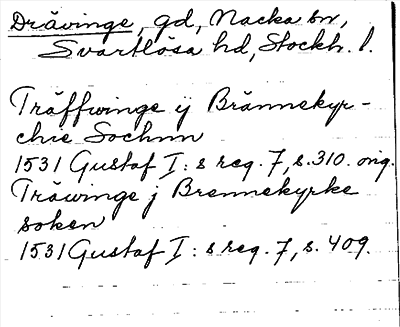 Drävinge, gd, Nacka sn,
Svartlösa hd, Stockh. l.
Träffwinge ÿ Brännekyr-
chie Sochnn
1531 Gustaf I: s reg. 7, s. 310. orig.
Träwinge j Brennekyrke
soken
1531 Gustaf I: s reg. 7, s. 409.